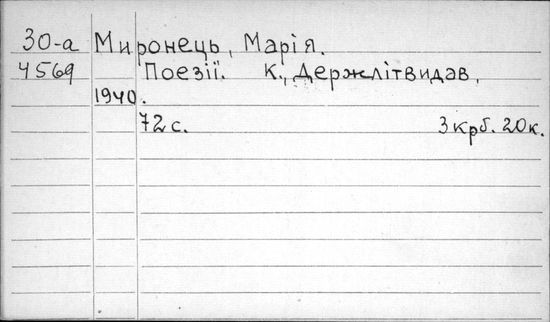 30-а Миронець, Марія.
4569 Поезії. К., Держлітвидав,
1940.
72 с. 3 крб. 20 к.